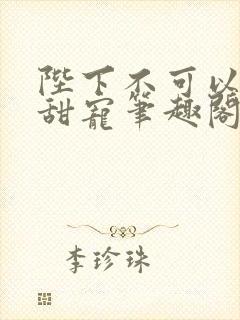 陛下不可以
甜寵筆趣閣
李珍珠